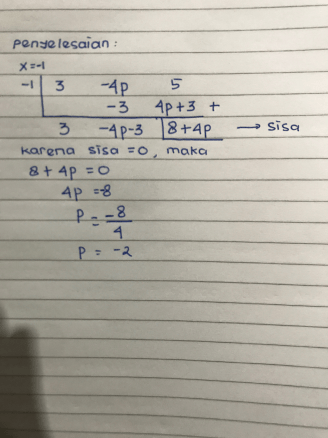 Penyelesaian :
x=-1
-1 | 3 -4p 5
-3 4p+3 +
3 -4p-3 8+4p → sisa
karena sisa =0, maka
8 + 4p = 0
4p =-8
P = -8
4
P = -2